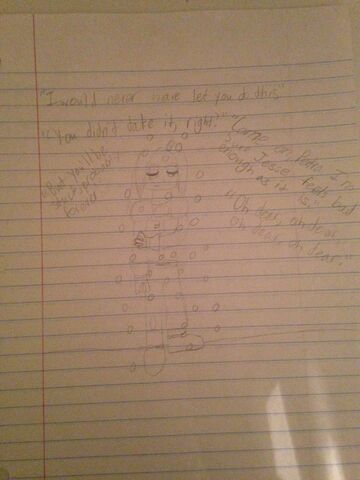 "I would never have let you do this"
"You didn't take it, right?"
"Come on, Petra. I'm
sure Jesse feels bad
enough as it is."
"But you'll be
forever
"Oh dear, oh dear,
oh dear, oh dear."